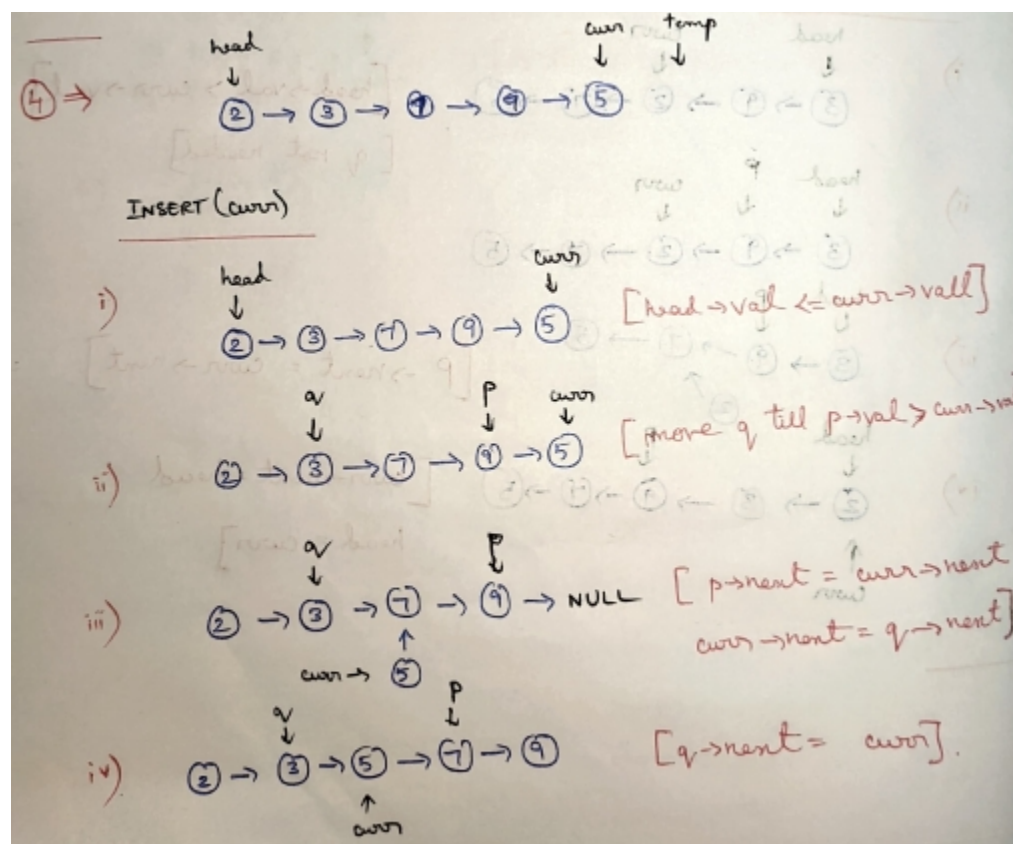 head curr temp
④ ⇒ ② → ③ → ⑦ → ⑨ → ⑤
INSERT (curr)
head curr
i) ② → ③ → ⑦ → ⑨ → ⑤ [head → val <= curr → vall]
q p curr
ii) ② → ③ → ⑦ → ⑨ → ⑤ [move q till p→val > curr→va
q p
iii) ② → ③ → ⑦ → ⑨ → NULL [ p→next = curr→next
curr → ⑤ curr →next = q →next]
q p
iv) ② → ③ → ⑤ → ⑦ → ⑨ [q→next = curr].
curr